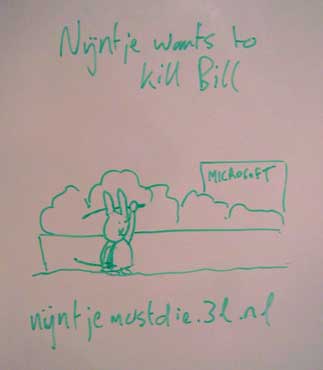 Nijntje wants to
kill Bill
MICROSOFT
nijntjemustdie.3l.nl